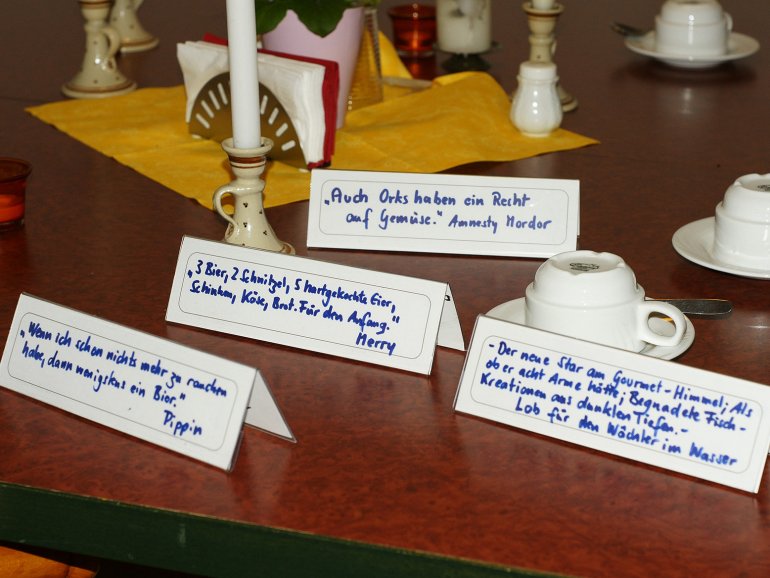 „Auch Orks haben ein Recht
auf Gemüse." Amnesty Mordor
„3 Bier, 2 Schnitzel, 5 hartgekochte Eier,
Schinken, Käse, Brot. Für den Anfang."
Merry
„Wenn ich schon nichts mehr zu rauchen
habe, dann wenigstens ein Bier."
Pippin
- Der neue Star am Gourmet-Himmel; Als
ob er acht Arme hätte; Begnadete Fisch-
Kreationen aus dunklen Tiefen. -
Lob für den Wächter im Wasser